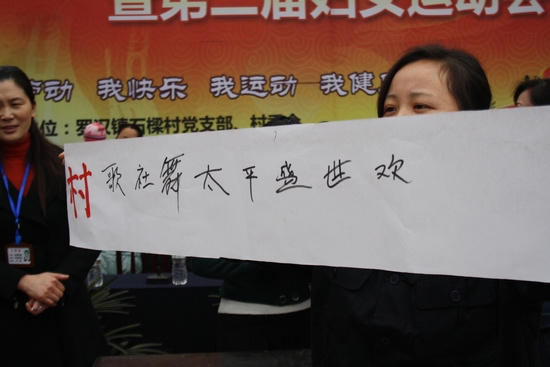 暨第二届妇女运动会
劳动 我快乐 我运动 我健
位：罗汉镇石樑村党支部、村委会
村歌社舞太平盛世欢